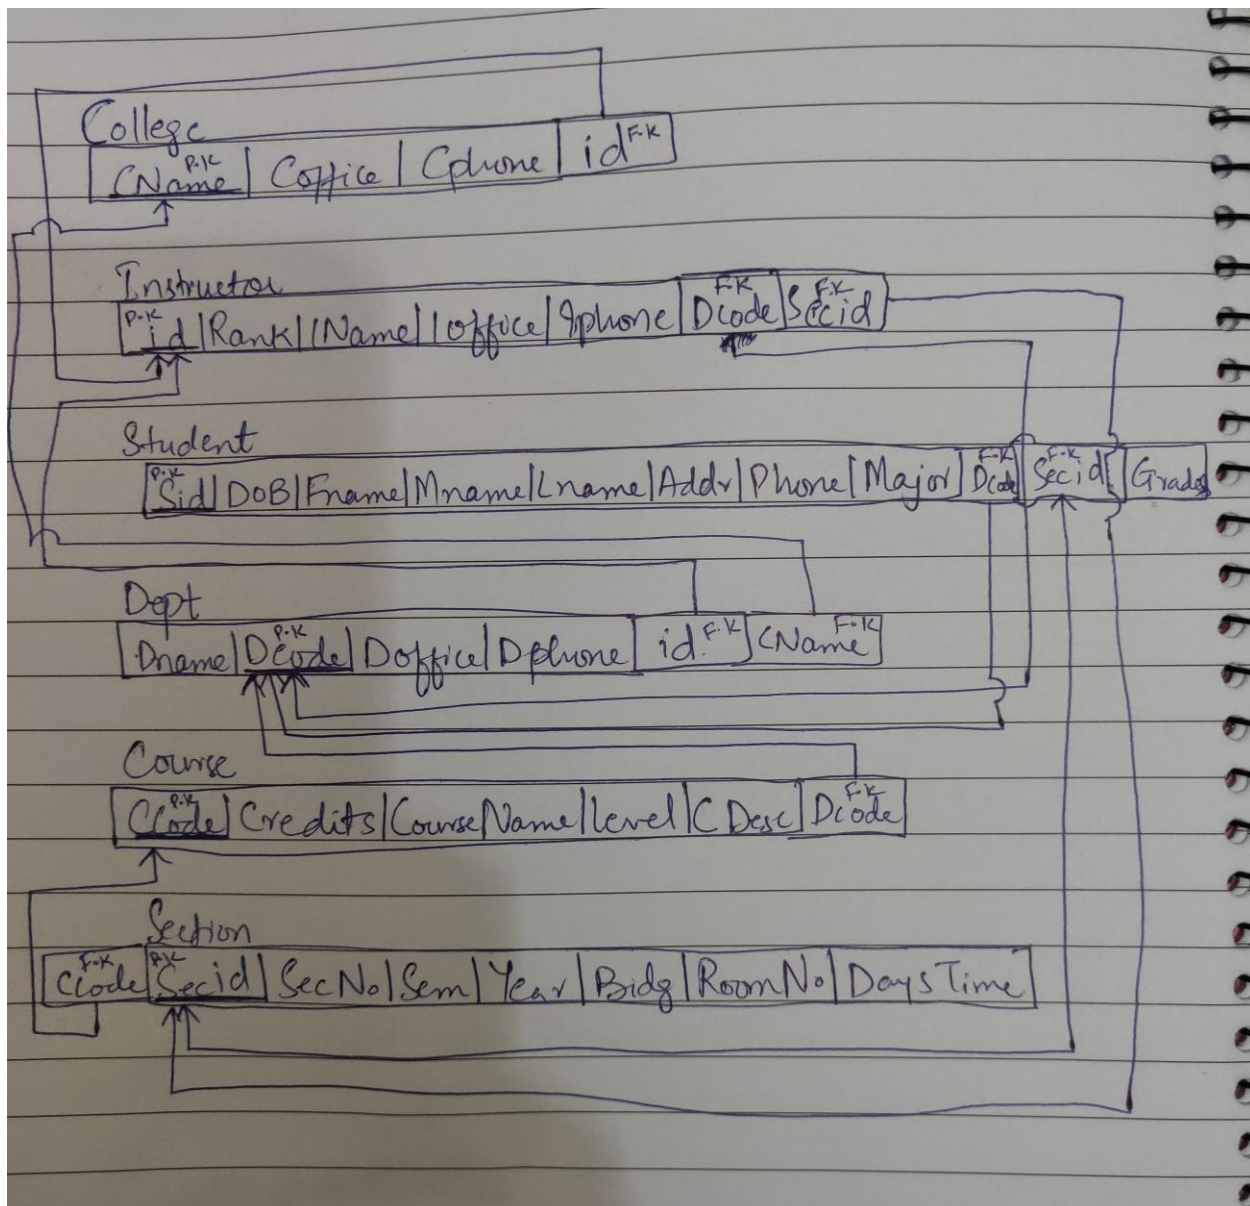 College
CName P.K | Coffice | Cphone | id F.K
Instructor
P.K id | Rank | IName | Ioffice | Iphone | Dcode F.K | Secid F.K
Student
P.K Sid | DoB | Fname | Mname | Lname | Addr | Phone | Major | Dcode F.K | Secid F.K | Grades
Dept
Dname | DCode P.K | Doffice | Dphone | id F.K | CName F.K
Course
CCode P.K | Credits | CourseName | Level | CDesc | Dcode F.K
Section
CCode F.K | Secid P.K | SecNo | Sem | Year | Bldg | RoomNo | DaysTime